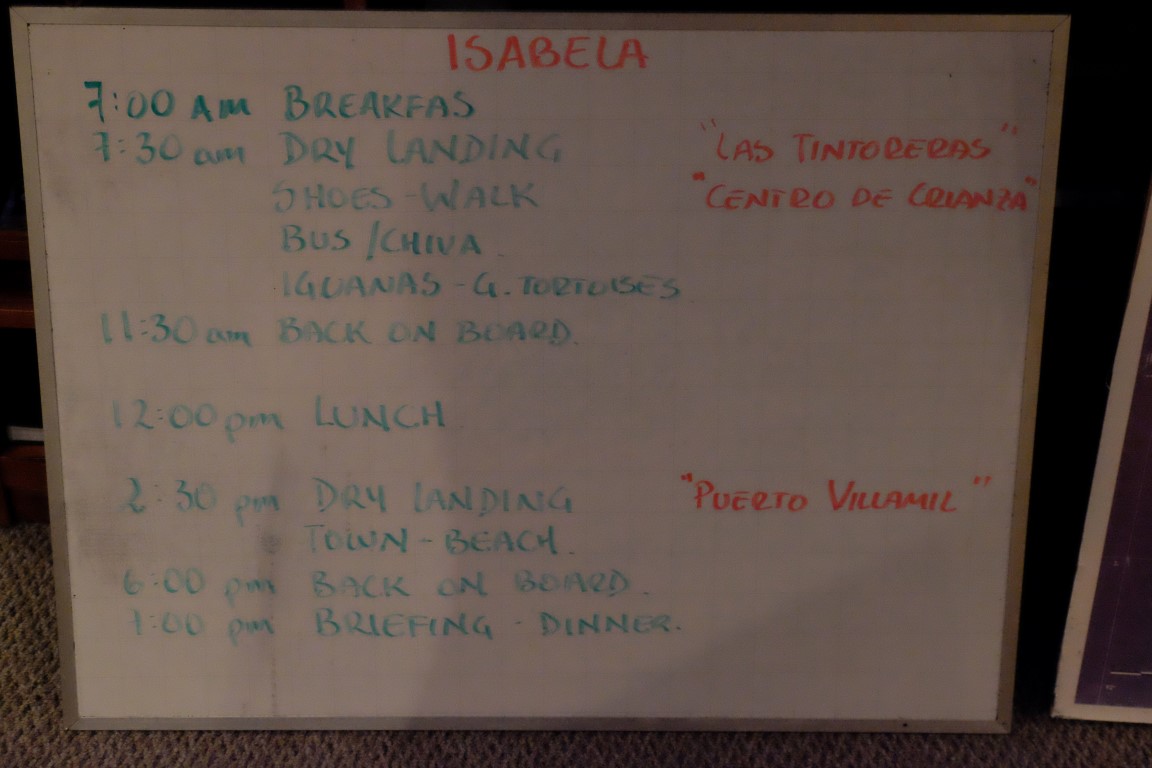 ISABELA
7:00 AM BREAKFAS
7:30 am DRY LANDING "LAS TINTORERAS"
SHOES - WALK "CENTRO DE CRIANZA"
BUS / CHIVA.
IGUANAS - G. TORTOISES
11:30 am BACK ON BOARD.
12:00 pm LUNCH.
2:30 pm DRY LANDING "PUERTO VILLAMIL"
TOWN - BEACH.
6:00 pm BACK ON BOARD.
7:00 pm BRIEFING - DINNER.